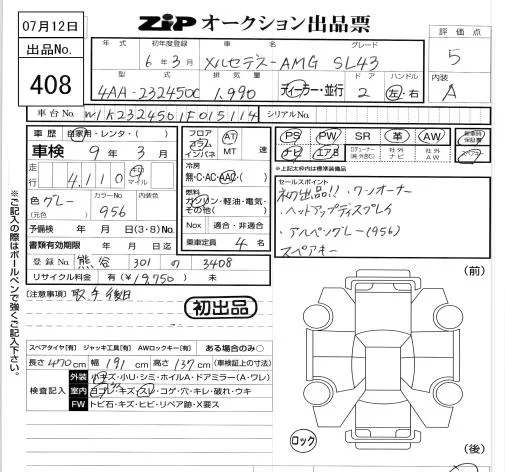 07月12日
ZiP オークション出品票
出品No.
408
年式 初年度登録 車名 グレード
6年3月 メルセデス-AMG SL43
型式 排気量 ドア ハンドル
4AA-232450C 1,990 ディーラー・並行 2 左・右
評価点
5
内装
A
車台No. W1K2324501F015114 シリアルNo.
車歴 自家用・レンタ・( )
車検 9年3月
走行 4,110 キロ マイル
色 グレー カラーNo. 956 内装色
(元色)
予備検 年 月 日(3・8)No.
書類有効期限 年 月 日迄
登録No. 熊谷 301 の 3408
リサイクル料金 有(¥19,750)無
フロア コラム インパネ AT MT 速
冷房
無・C・AC・AAC・( )
燃料
ガソリン・軽油・電気・その他( )
Nox 適合・非適合
乗車定員 4 名
PS PW SR 革 AW 新車時保証書
ナビ エアB 社外ナビ 社外AW
※上記太枠内は標準装備品
セールスポイント
初出品!!、ワンオーナー
・ヘッドアップディスプレイ
・アルペングレー(956)
スペアキー
※ご記入の際はボールペンで強くご記入下さい。
[注意事項] 取手後日
初出品
スペアタイヤ[有] ジャッキ工具[有] AWロックキー[有] ある場合のみ○
長さ 470cm 幅 191cm 高さ 137cm (車検証上の寸法)
検査記入
外装 小キズ・小U・シミ・ホイルA・ドアミラー(A・ワレ)
室内 ヨゴレ・キズ・スレ・コゲ・穴・キレ・破れ・ウキ
FW トビ石・キズ・ヒビ・リペア跡・X要ス
(前)
ロック
(後)